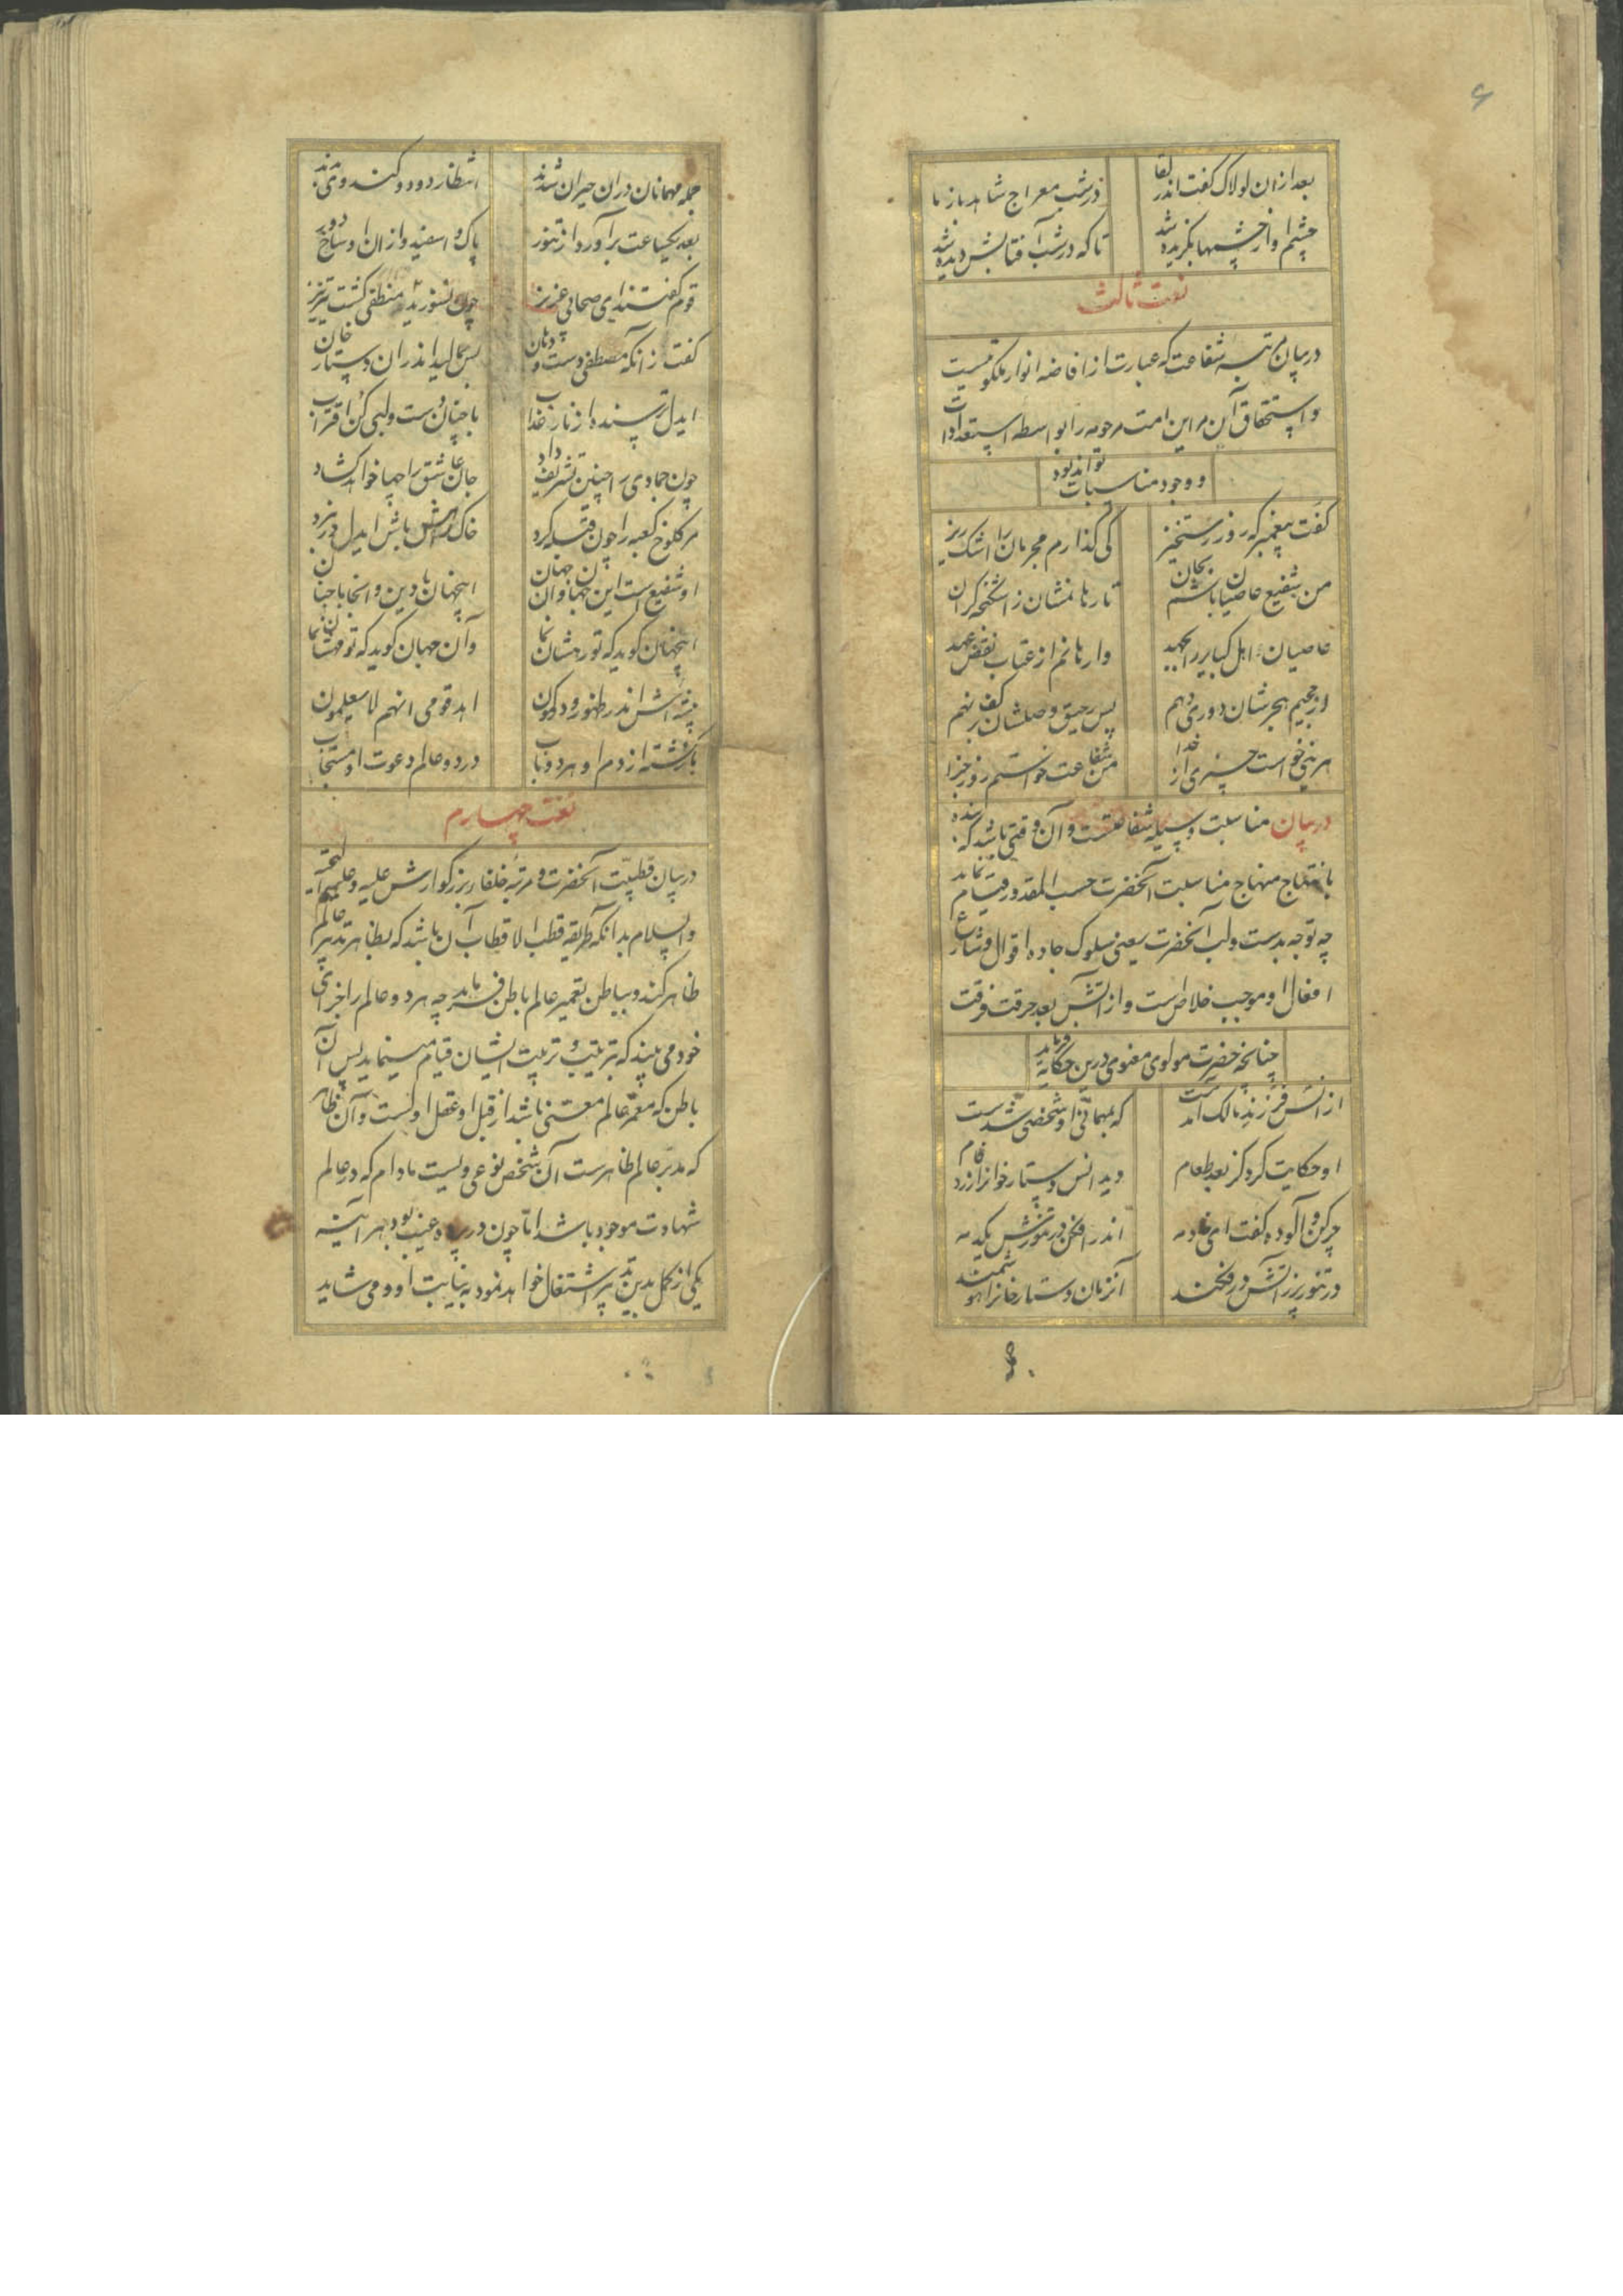 ۶
بعد ازان لولاک گفت اندر لقا در شب معراج شاهد باز ما
چشم او از چشمها بگزیده شد تا که در شب آفتابش دیده شد
نعت ثالث
در بیان مرتبه شفاعت که عبارت از افاضه انوار ملکوتیست
و استحقاق آن مر این امت مرحومه را بواسطه استعدادات
و وجود مناسبات تواند بود
گفت پیغمبر که روز رستخیز کی گذارم مجرمان را اشک ریز
من شفیع عاصیان باشم بجان تا رهانمشان ز اشکنجه گران
عاصیان و اهل کبایر را بجهد وارهانم از عتاب نقض عهد
از جحیم هجرشان دوری دهم پس رحیق وصلشان بر کف نهم
هر نبی خواست چیزی از خدا من شفاعت خواستم روز جزا
در بیان مناسبت وسیله شفاعتست و آن وقتی باشد که بنده
منهاج مناسبت آنحضرت حسب المقدور قیام نماید
چه توجه بدست و لب آنحضرت یعنی سلوک جاده اقوال و شارع
افعال او موجب خلاص است از آتش بعد و حرقت فرقت
چنانچه حضرت مولوی معنوی درین حکایه فرماید
از انس فرزند مالک آمدست که بمهمانی او شخصی شدست
او حکایت کرد کز بعد طعام دید انس دستار خوانرا زرد فام
چرکن و آلوده گفت ای خادمه اندر افکن در تنورش یکدمه
در تنور پر ز آتش در فکند آنزمان دستار خانرا هوشمند
جمله مهمانان دران حیران شدند انتظار دود کندوری بدند
بعد یکساعت برآورد از تنور پاک و اسفید و ازان اوساخ دور
قوم گفتند ای صحابی عزیز چون نسوزید و منقی گشت نیز
گفت زانکه مصطفی دست و دهان بس بمالید اندران دستار خان
ایدل ترسنده از نار عذاب با چنان دست و لبی کن اقتراب
چون جمادی را چنین تشریف داد جان عاشق را چها خواهد گشاد
مر کلوخ کعبه را چون قبله کرد خاک راهش باش ایدل در نبرد
او شفیع است این جهان و آن جهان اینجهان با دین و آنجا با جنان
اینجهان گوید که تو رهشان نما وآن جهان گوید که تو مهشان نما
پیشه‌اش اندر ظهور و در کمون اهد قومی انهم لا یعلمون
بازگشته از دم او هر دو باب در دو عالم دعوت او مستجاب
نعت چهارم
در بیان قطبیت آنحضرت و مرتبه خلفاء بزرگوارش علیه و علیهم التحیه
والسلام بدانکه طریقه قطب الاقطاب آن باشد که بظاهر تدبیر عالم
ظاهر کند و بباطن تعمیر عالم باطن فرماید چه هر دو عالم را اجزای
خود می بیند که بترتیب و تربیت ایشان قیام مینماید پس آن
باطن که معمر عالم معنی باشد از قبل او عقل اوست و آن ظاهر
که مدبر عالم ظاهرست آن شخص نوعی ویست مادام که در عالم
شهادت موجود باشد اما چون در پرده غیب بود هر آینه
یکی از کمل بدین تدبیر اشتغال خواهد نمود به نیابت او و می شاید